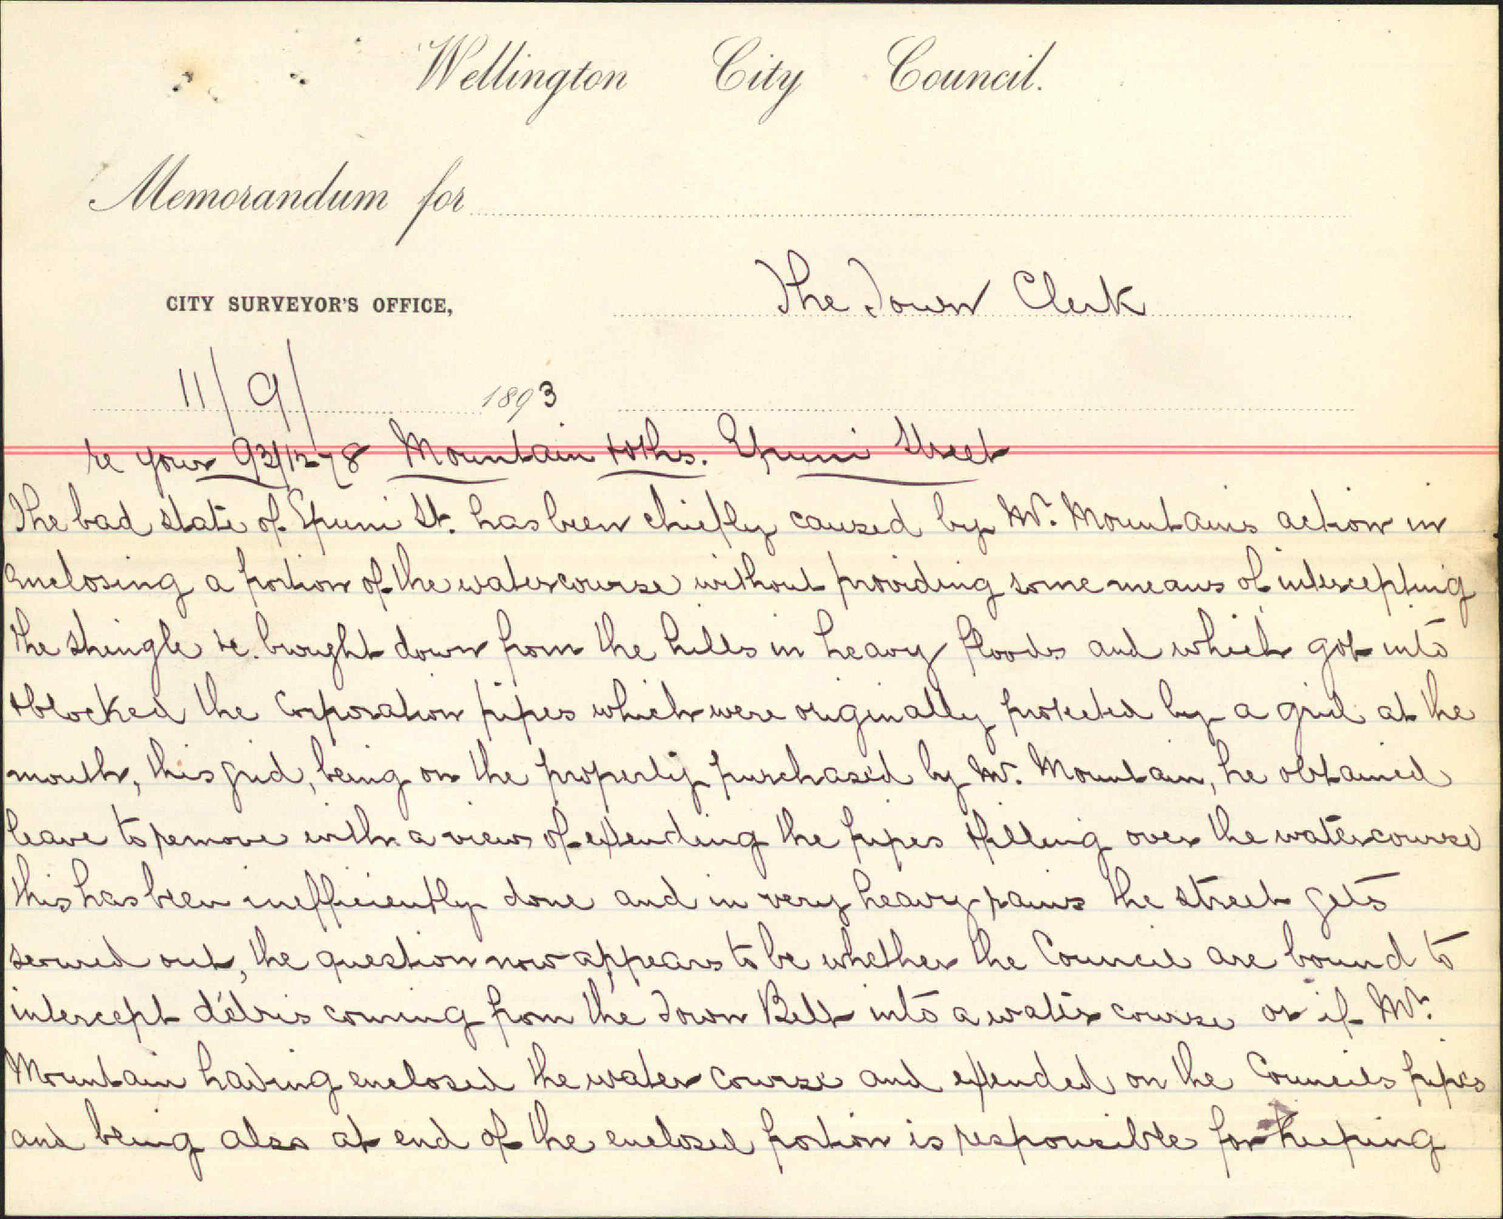 Wellington City Council.
Memorandum for
The Town Clerk
CITY SURVEYOR'S OFFICE,
11/9/ 1893
re your 93/1278 Mountain & oths. Epuni Street
The bad state of Epuni St. has been chiefly caused by Mr. Mountains action in
enclosing a portion of the watercourse without providing some means of intercepting
the shingle &c. brought down from the hills in heavy floods and which got into
& blocked the Corporation pipes which were originally protected by a grid at the
mouth, this grid, being on the property purchased by Mr. Mountain, he obtained
leave to remove with a view of extending the pipes & filling over the watercourse
this has been inefficiently done and in very heavy rains the street gets
scoured out, the question now appears to be whether the Council are bound to
intercept débris coming from the Town Belt into a water course or if Mr.
Mountain having enclosed the water course and extended on the Councils pipes
and being also at end of the enclosed portion is responsible for keeping